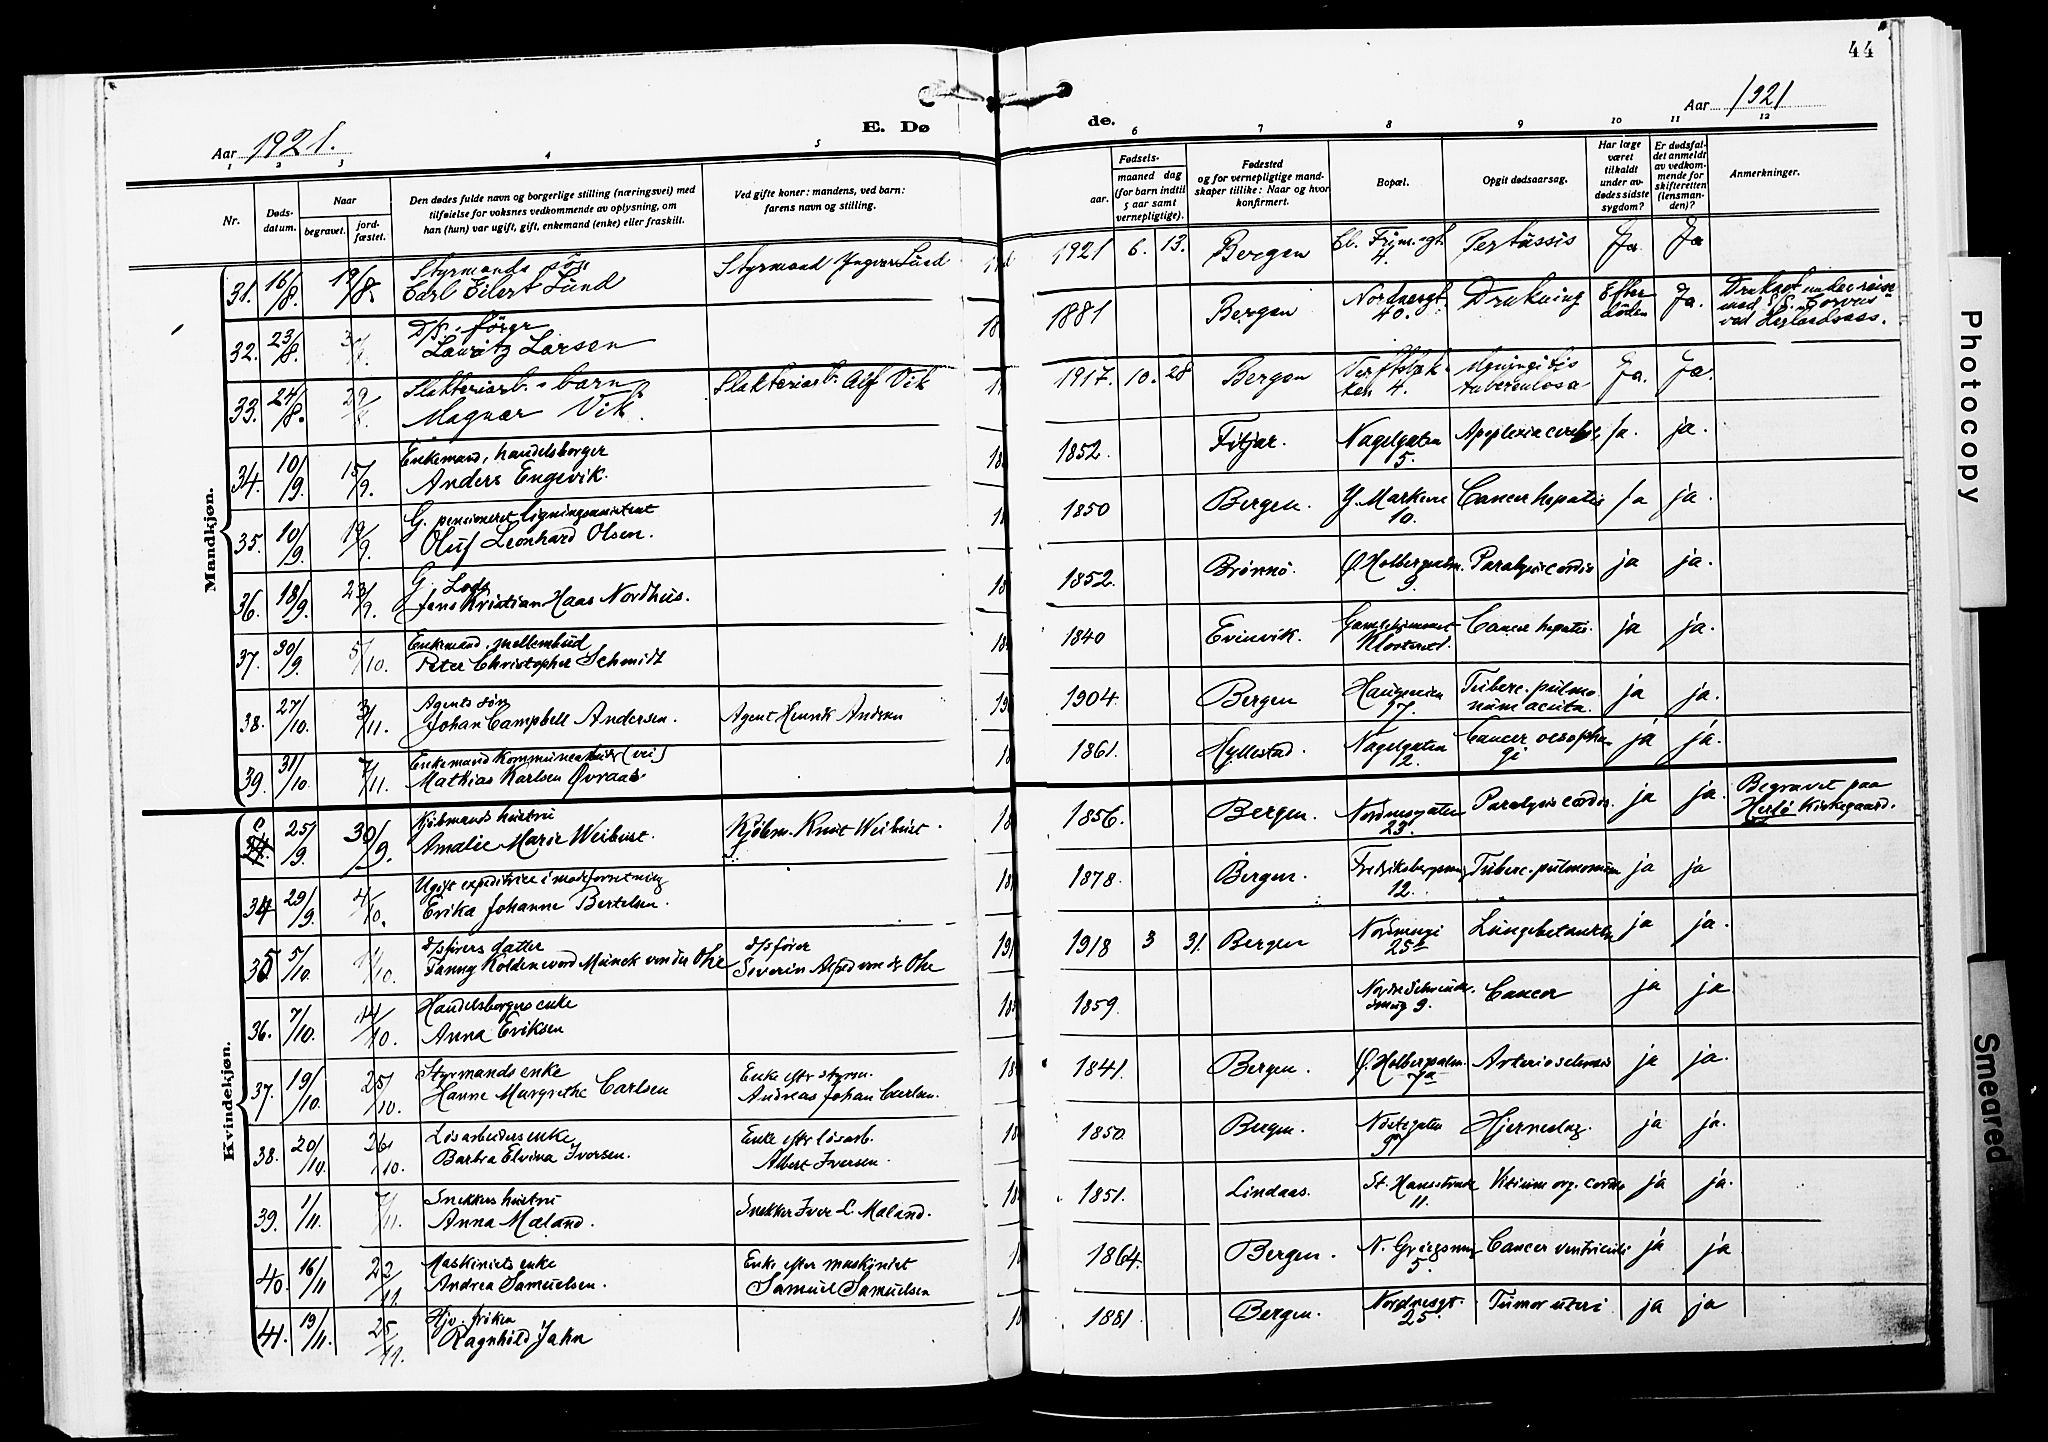 44
Aar 1921.
E. Dø
de.
Aar 1921
1 2 3 4 5
6 7 8 9 10 11 12
Nr.
Døds-
datum.
Naar
begravet.
jord-
fæstet.
Den dødes fulde navn og borgerlige stilling (næringsvei) med
tilføielse for voksnes vedkommende av oplysning, om
han (hun) var ugift, gift, enkemand (enke) eller fraskilt.
Ved gifte koner: mandens, ved barn:
farens navn og stilling.
Fødsels-
aar.
maaned dag
(for barn indtil
5 aar samt
vernepligtige).
Fødested
og for vernepligtige mand-
skaper tillike: Naar og hvor
konfirmert.
Bopæl.
Opgit dødsaarsag.
Har læge
været
tilkaldt
under av-
dødes sidste
sygdom?
Er dødsfal-
det anmeldt
av vedkom-
mende for
skifteretten
(lensman-
den)?
Anmerkninger.
Mandkjøn.
31. 16/8. 19/8. Styrmands søn
Carl Eilert Lund
Styrmand Ingvar Lund
1921 6. 13. Bergen 4. Pertussis Ja Ja
32. 23/8. Lauritz Larsen
1881 Bergen Nordnesgt. 40. Drukning Efter døden Ja. Druknet under reise
med S/S. "Corvus"
33. 24/8. 29/8. Slakteriarb.s barn
Magnar Vik
Slakteriarb. Alf Vik
1917. 10. 28 Bergen 4. Meningitis
tuberculosa Ja. Ja.
34. 10/9. 15/9. Enkemand, handelsborger
Anders Engevik.
1852. Fitjar. Nagelgaten
5. Apoplexia cerebri Ja. ja.
35. 10/9. 19/9. G. pensioneret ligningsassistent
Oluf Leonhard Olsen.
1850 Bergen. Y. Markevei
10. Cancer hepatis Ja ja.
36. 18/9. 23/9. G. Lods
Jens Kristian Haas Nordhus.
1852. Brønnø. Ø. Holbergsalm.
9. Paralysis cordis ja ja.
37. 30/9. 5/10. Enkemand,
Peter Christopher Schmidt
1840 Evinvik. Klosteret. Cancer hepatis. ja ja.
38. 27/10. 3/11. Agents søn
Johan Campbell Andersen.
Agent Henrik Andersen
1904. Bergen Haugeveien
17. Tuberc. pulmo-
num acuta. ja ja.
39. 31/10. 7/11. Enkemand Kommunearbeider (vei)
Mathias Karlsen Øvraas
1861. Hyllestad. Nagelgaten
12. Cancer oesopha-
gi ja ja.
Kvindekjøn.
25/9. 30/9. Kjøbmands hustru
Amalie Marie Weibust.
Kjøbm. Knut Weibust.
1856. Bergen. Nordnesgaten
23. Paralysis cordis. ja ja. Begravet paa
Herlø Kirkegaard.
34 29/9. 4/10. Ugift expeditrice i modeforretning
Erika Johanne Bertelsen.
1878. Bergen. Fredriksbergsvei
12. Tuberc. pulmonum ja ja
35 5/10. 11/10. d/sførers datter
Fanny Koldenword Munck von der Ohe
d/sfører
Severin Alfred von der Ohe
1918 3 31. Bergen Nordnesvei
25b Lungebetændelse ja ja.
36. 7/10. 14/10. Handelsborgers enke
Anna Eriksen
1859. 9. Cancer ja ja
37. 19/10. 25/10. Styrmands enke
Hanne Margrethe Carlsen
Enke efter styrm.
Andreas Johan Carlsen.
1841. Bergen. Ø. Holbergsalm.
7a Arteriosclerosis ja ja.
38. 20/10. 26/10. Løsarbeiders enke
Barbra Elvina Iversen.
Enke efter løsarb.
Albert Iversen.
1850. Bergen. Nøstegaten
Hjerneslag. ja ja.
39. 1/11. 7/11. Snekkers hustru
Anna Mæland.
Snekker Iver L. Mæland.
1851. Lindaas. St. Hansstræde
11. Vitium org. cordis ja ja.
40. 16/11 22/11. Maskinists enke
Andrea Samuelsen.
Enke efter maskinist
Samuel Samuelsen
1864. Bergen. N. Griegsvei
5. Cancer ventriculi ja ja
41. 19/11. 25/11. Hjv. frøken
Ragnhild Jahn
1881 Bergen. Nordnesgt.
25. Tumor uteri ja ja
Photocopy
Smeared